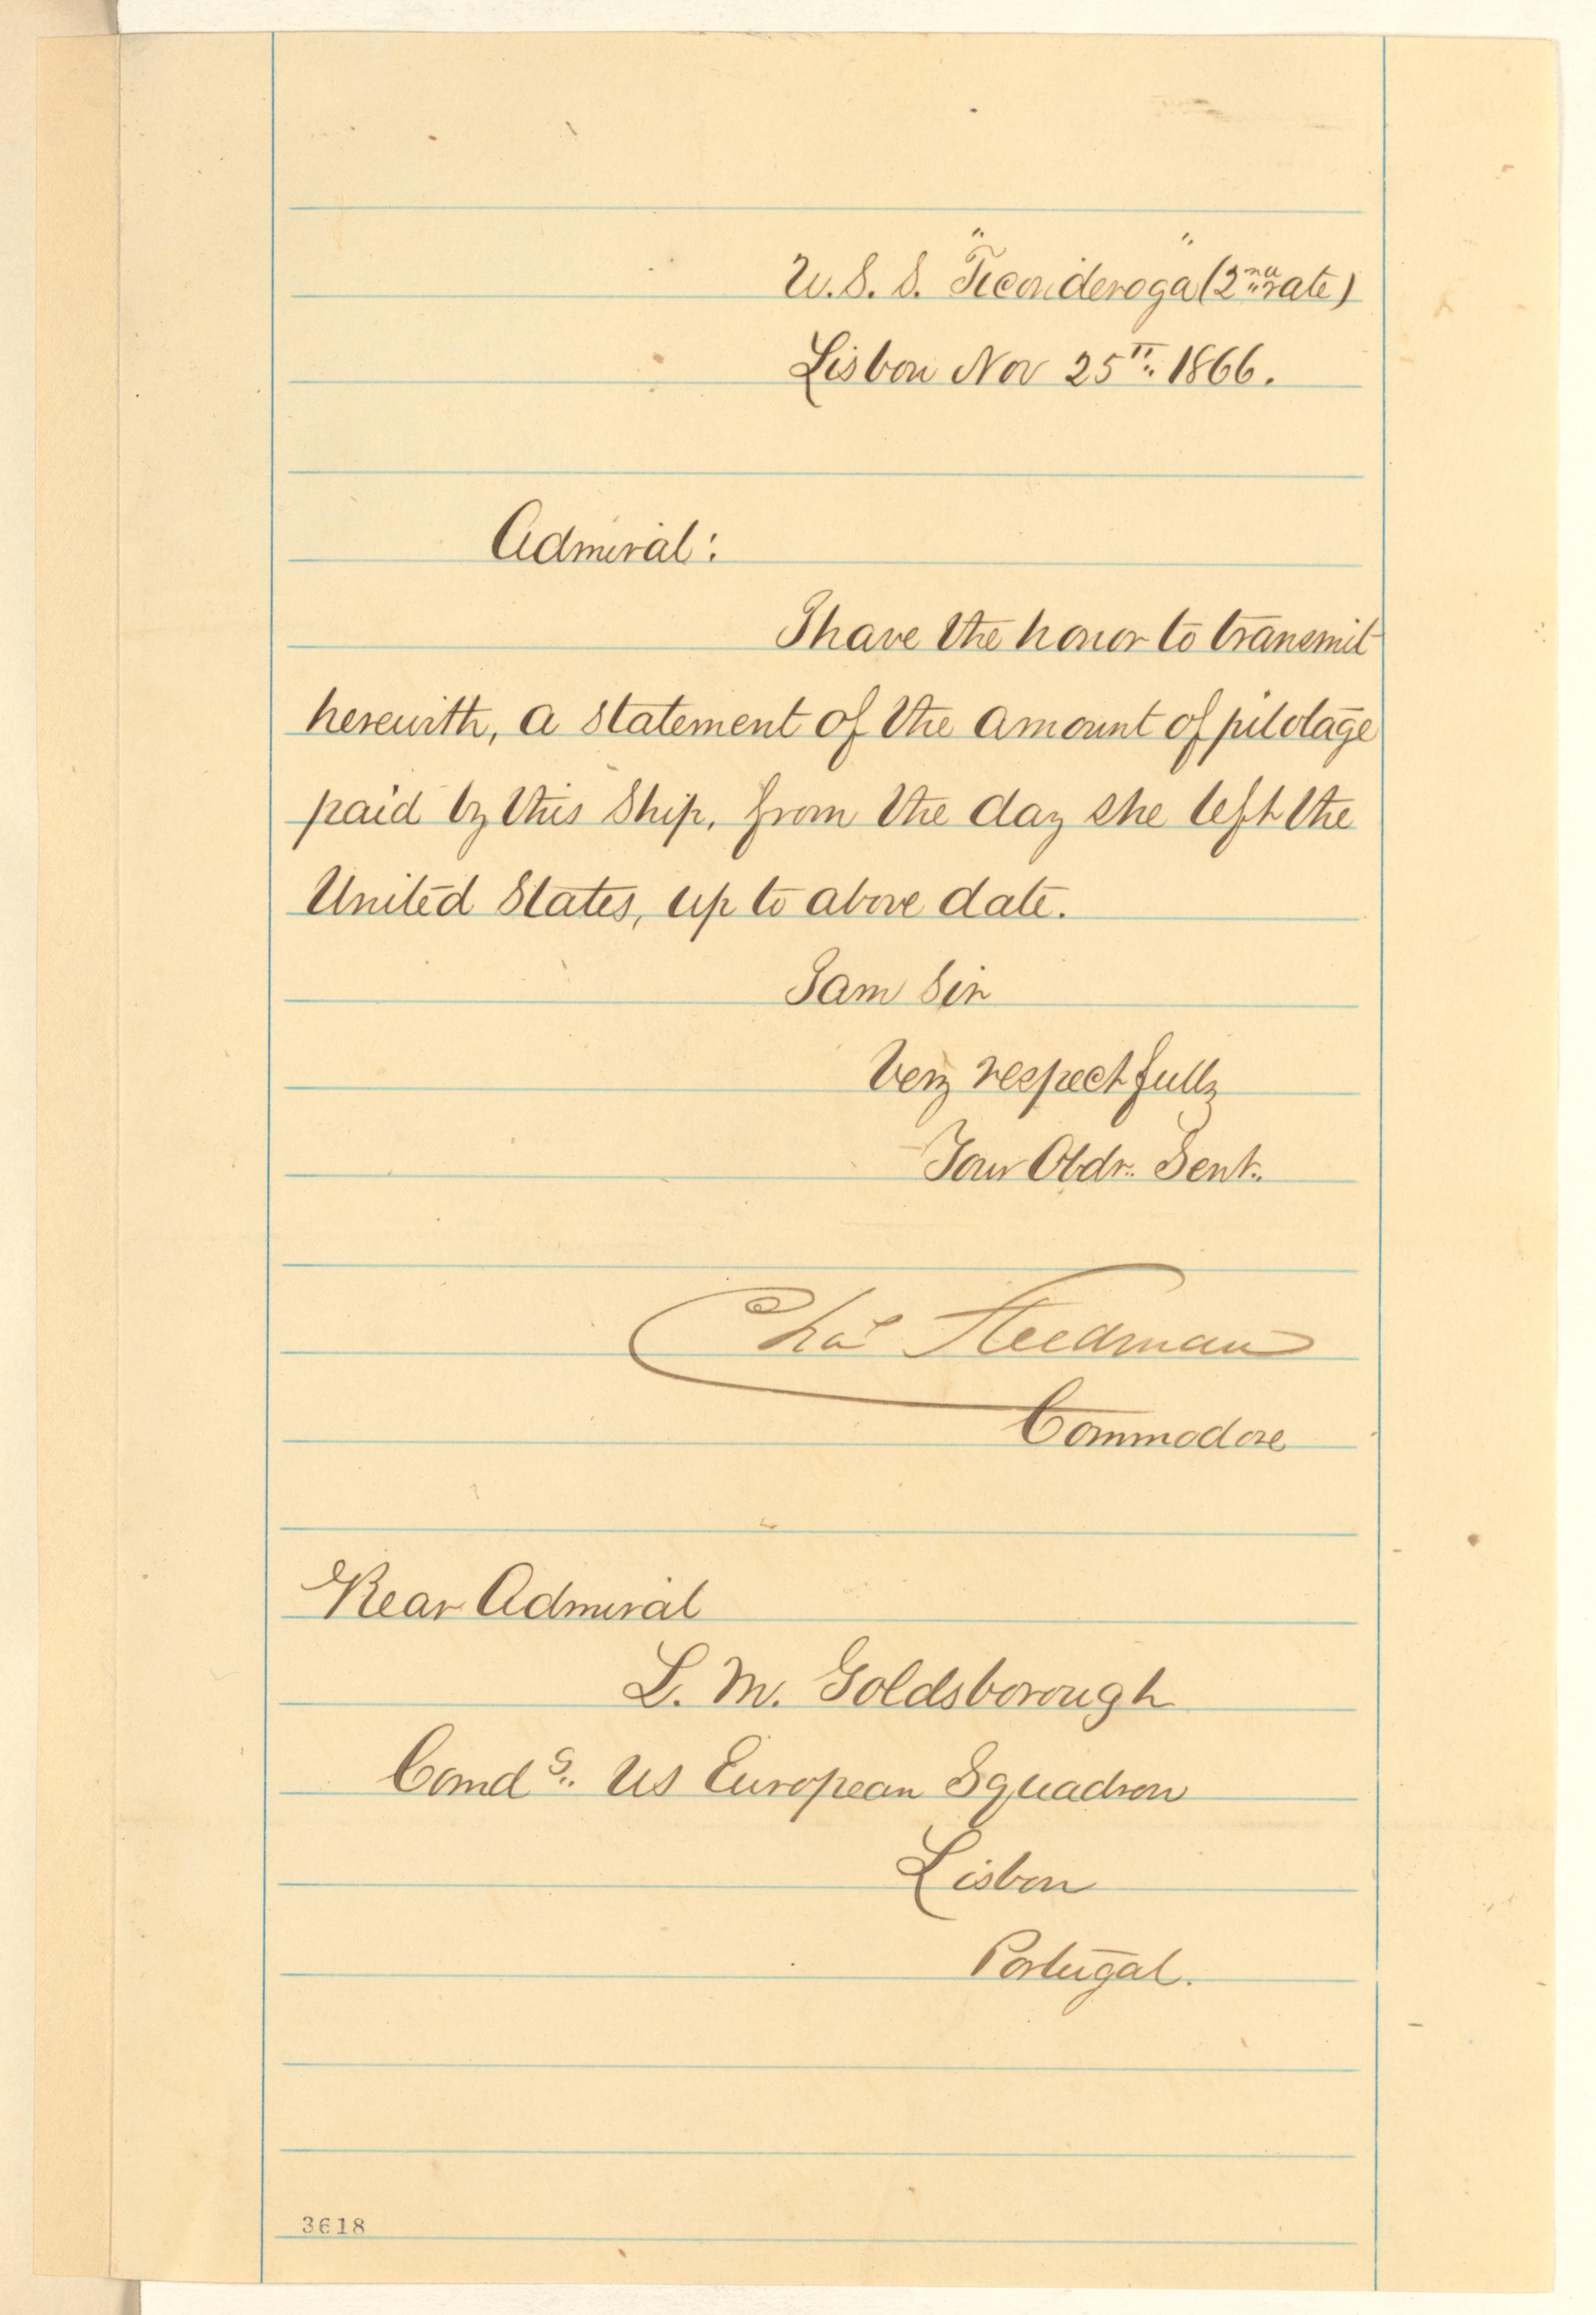 U.S.S. "Ticonderoga" (2nd rate)
Lisbon Nov 25th 1866.
Admiral:
I have the honor to transmit
herewith, a statement of the amount of pilotage
paid by this Ship, from the day she left the
United States, up to above date.
I am Sir
Very respectfully
Your Obdt. Servt.
Chas Steedman
Commodore
Rear Admiral
L. M. Goldsborough
Comdg. US European Squadron
Lisbon
Portugal.
3618